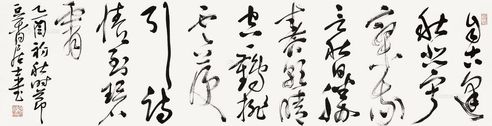 自古逢
秋悲寂
寥我
言秋日勝
春朝晴
空一鶴排
雲上便
引詩
情到碧
霄
乙酉初秋時節
居士書